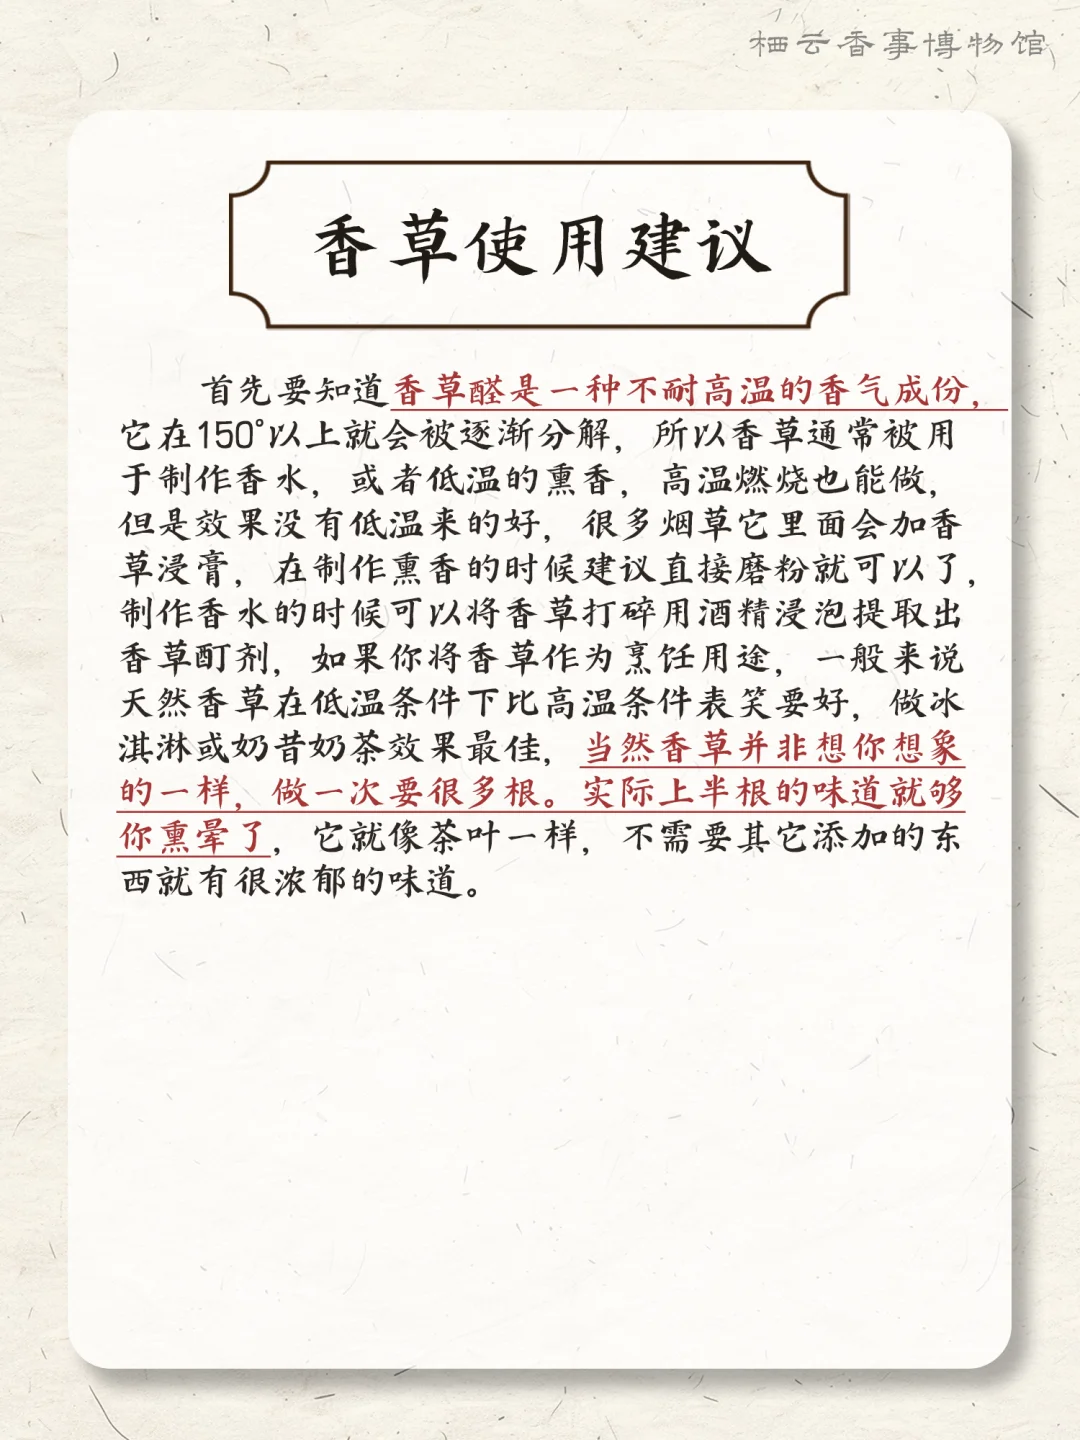 栖云香事博物馆
香草使用建议
首先要知道香草醛是一种不耐高温的香气成份，
它在150°以上就会被逐渐分解，所以香草通常被用
于制作香水，或者低温的熏香，高温燃烧也能做，
但是效果没有低温来的好，很多烟草它里面会加香
草浸膏，在制作熏香的时候建议直接磨粉就可以了，
制作香水的时候可以将香草打碎用酒精浸泡提取出
香草酊剂，如果你将香草作为烹饪用途，一般来说
天然香草在低温条件下比高温条件表笑要好，做冰
淇淋或奶昔奶茶效果最佳，当然香草并非想你想象
的一样，做一次要很多根。实际上半根的味道就够
你熏晕了，它就像茶叶一样，不需要其它添加的东
西就有很浓郁的味道。